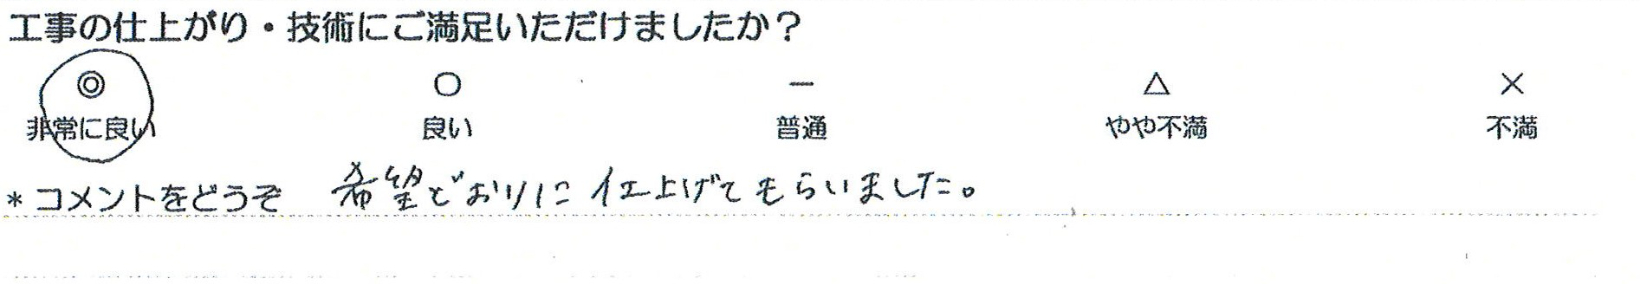 工事の仕上がり・技術にご満足いただけましたか？
◎ ○ － △ ×
非常に良い 良い 普通 やや不満 不満
＊コメントをどうぞ 希望どおりに仕上げてもらいました。